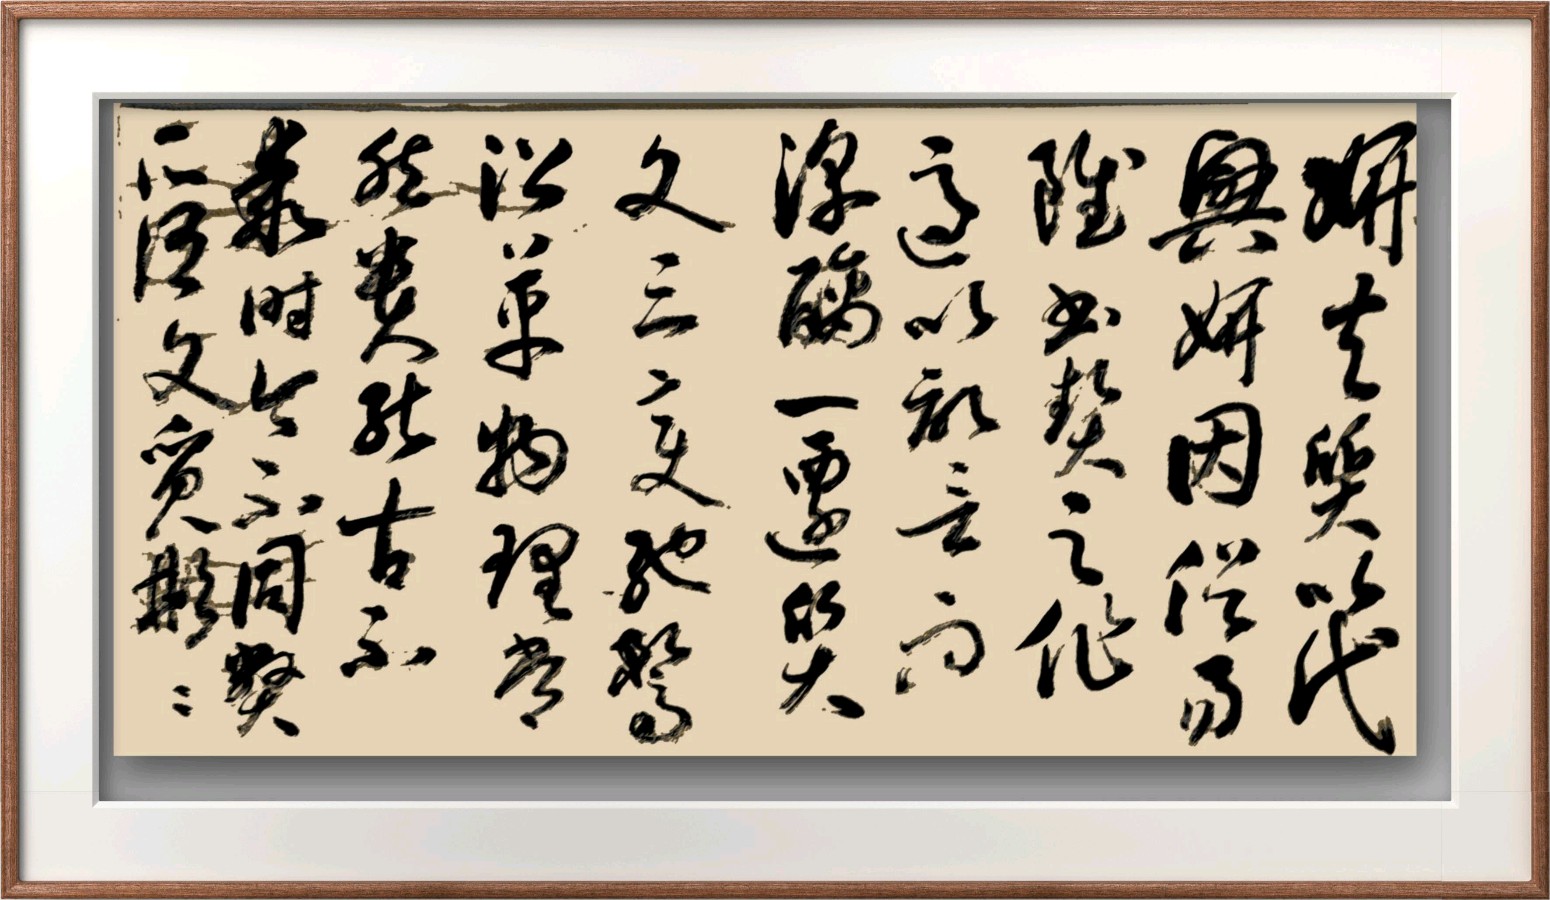 妍夫質以代
興妍因俗易
雖書契之作
適以記言而
淳醨一遷質
文三變馳騖
沿革物理常
然貴能古不
乖時今不同弊
所謂文質彬〻